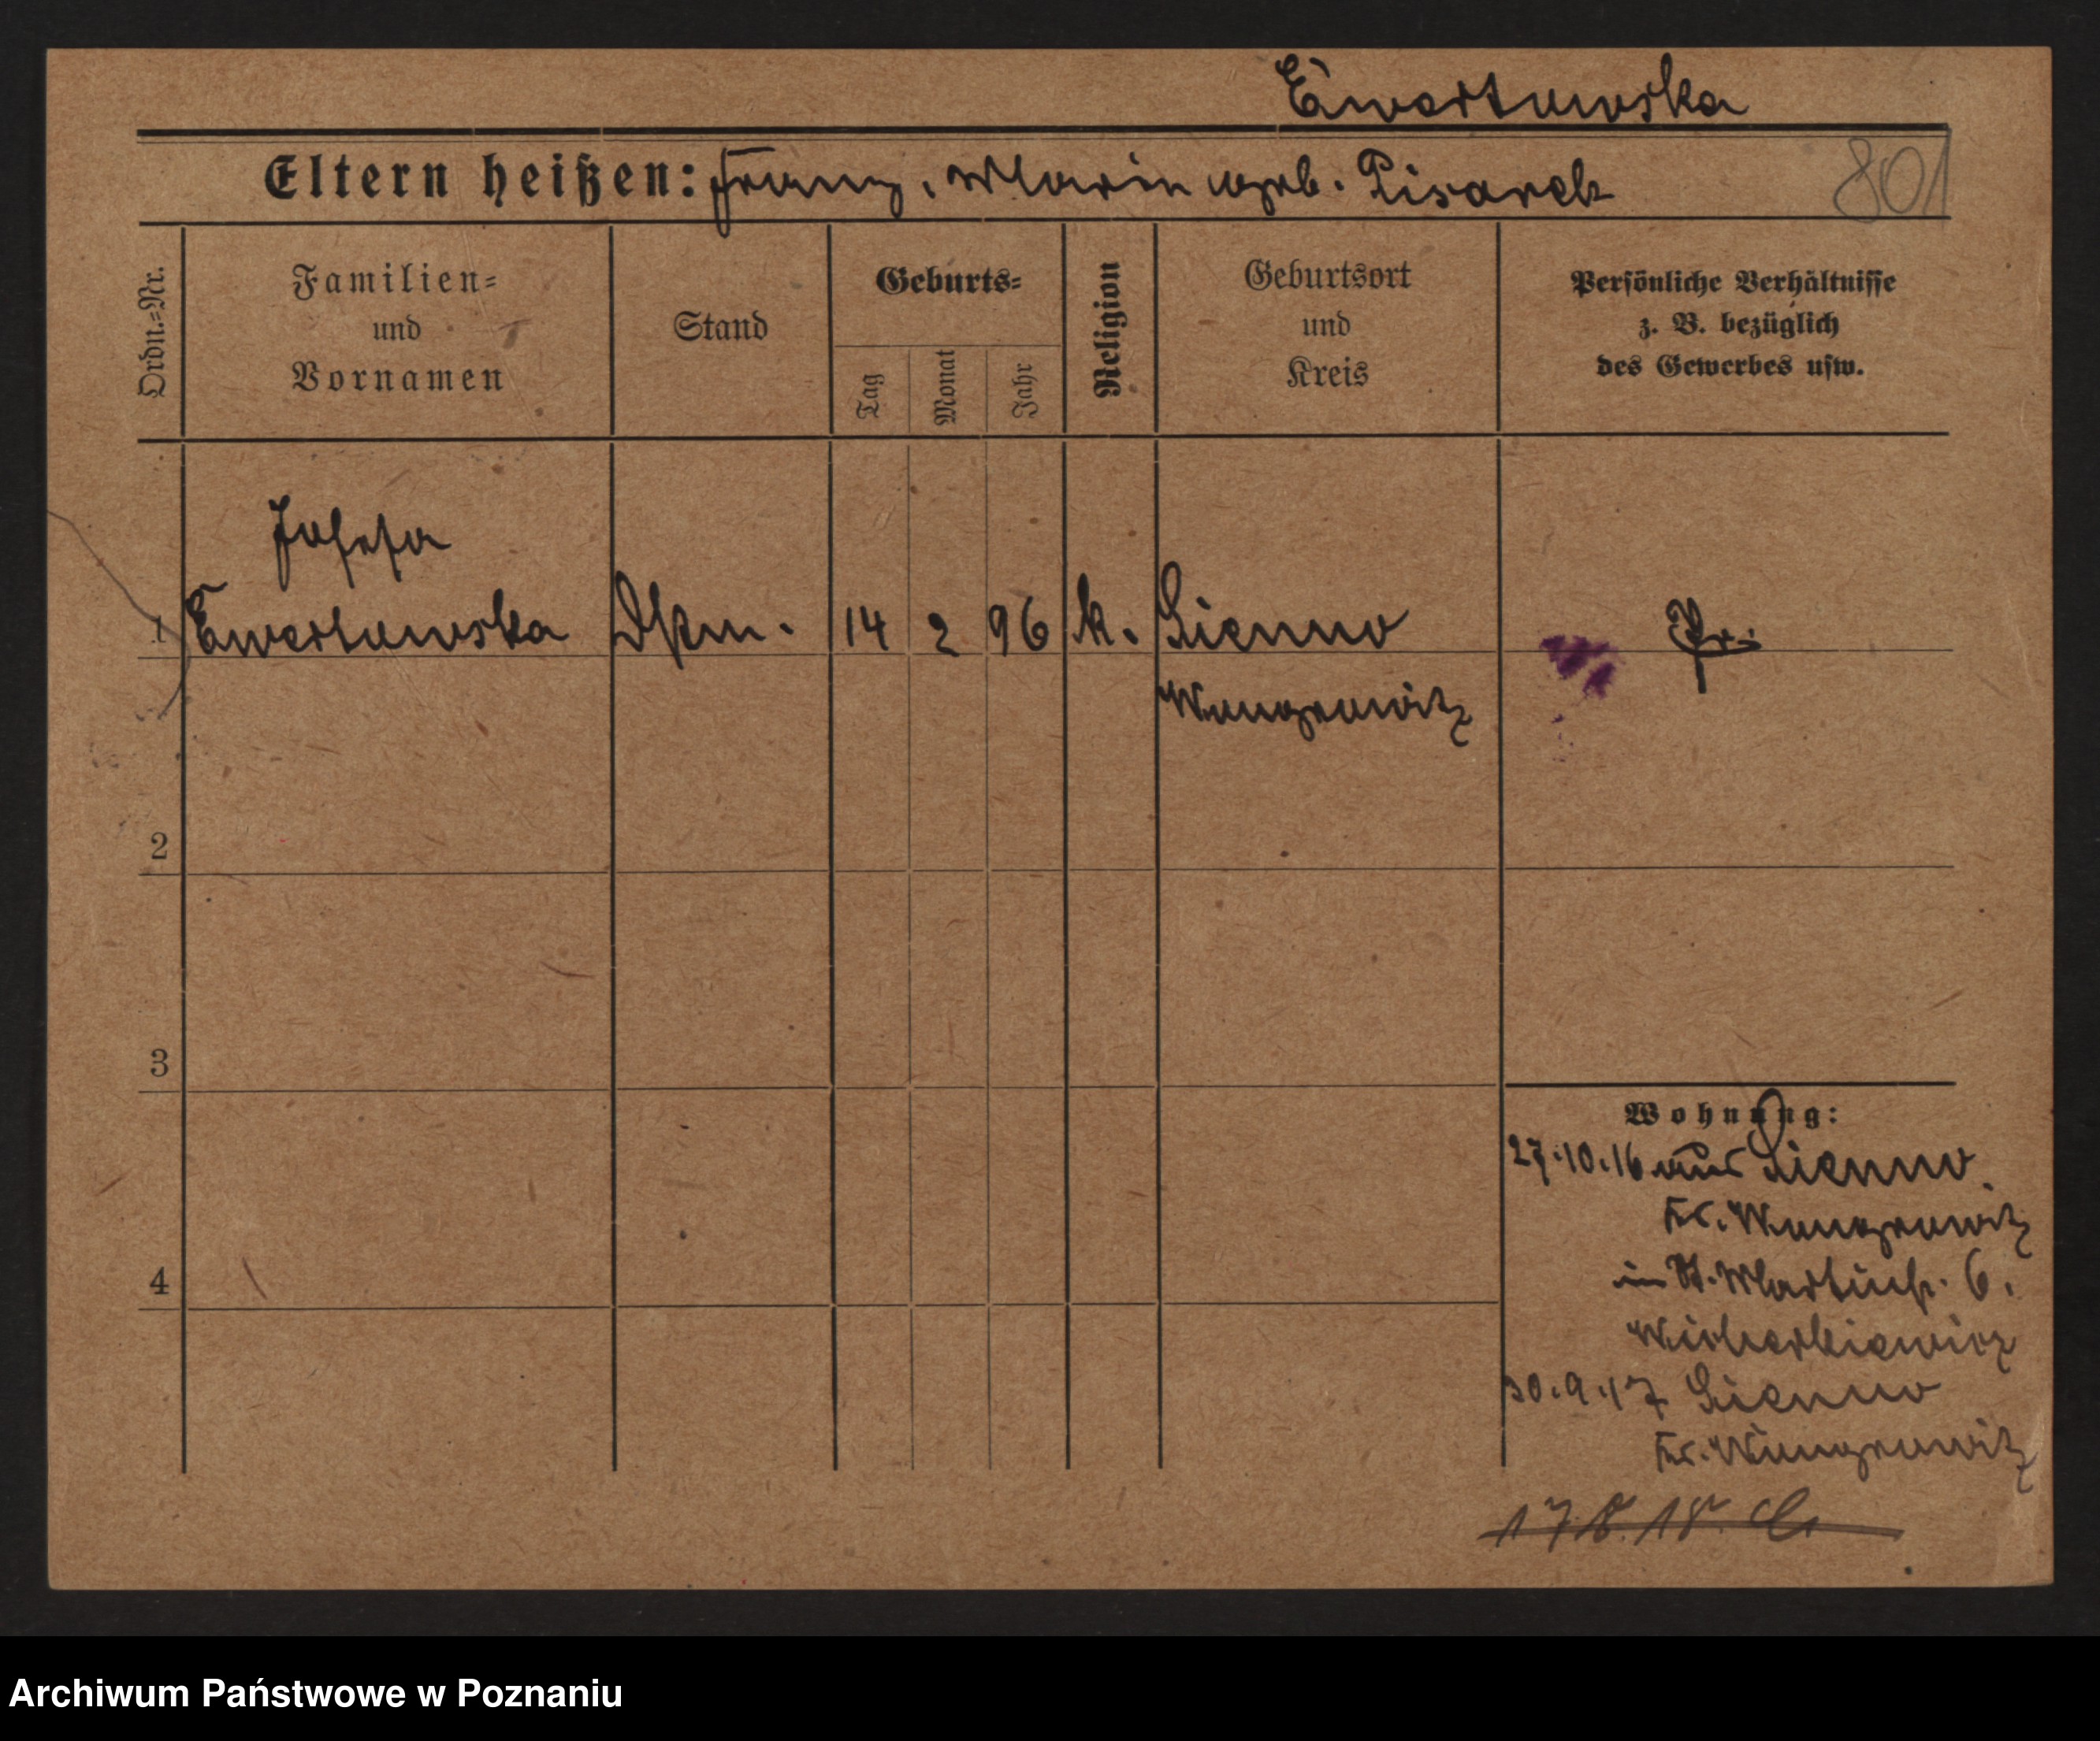 Ewertowska
Eltern heißen: Franz, Maria geb. Pisarek
801
Ordn.=Nr.
Familien=
und
Vornamen
Stand
Geburts=
Tag
Monat
Jahr
Religion
Geburtsort
und
Kreis
Persönliche Verhältnisse
z. B. bezüglich
des Gewerbes usw.
Josefa
1 Ewertowska Dstm. 14 2 96 k. Sienno Pr.
Wongrowitz
2
3
4
Wohnung:
27.10.16 aus Sienno
Kr. Wongrowitz
in St. Martinstr. 6.
Wicherkiewicz
30.9.17 Sienno
Kr. Wongrowitz
17.8.18.
Archiwum Państwowe w Poznaniu